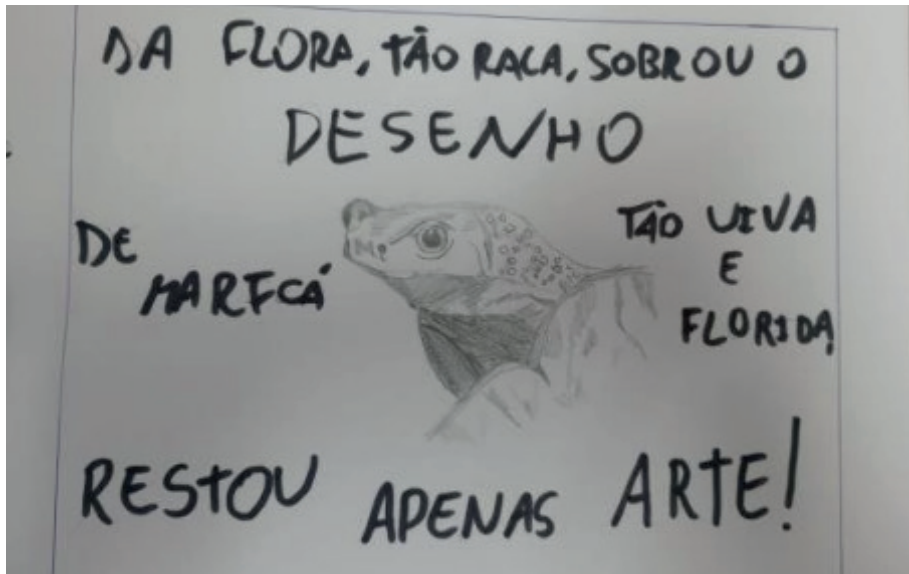 DA FLORA, TÃO RACA, SOBROU O
DESENHO
DE
MARICÁ
TÃO VIVA
E
FLORIDA,
RESTOU APENAS ARTE!